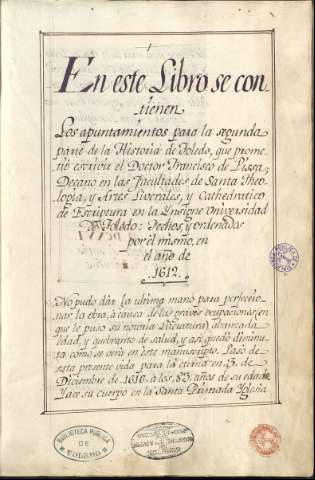 En este Libro se con
tienen
Los apuntamientos para la segunda
parte de la Historia de Toledo, que prome
tió escrivir el Doctor Francisco de Pissa,
Decano en las Facultades de Santa Theo
logia, y Artes Liverales, y Cathedratico
de Escriptura en la Ensigne Universidad
de Toledo: fechos, y ordenados
por el mismo, en
el año de
1612.
No pudo dàr la ultima mano para perfeccio
nar la obra, à causa de las graves ocupaciones en
que le puso su notoria Literatura, abanzada
edad, y quebranto de salud, y asi quedó diminu
ta como se verà en este manuscripto. Pasó de
esta presente vida para la eterna en 3. de
Diciembre de 1616 à los 83 años de su edad
Yace su cuerpo en la Santa Primada Iglesia
BIBLIOTECA PUBLICA
DE
TOLEDO